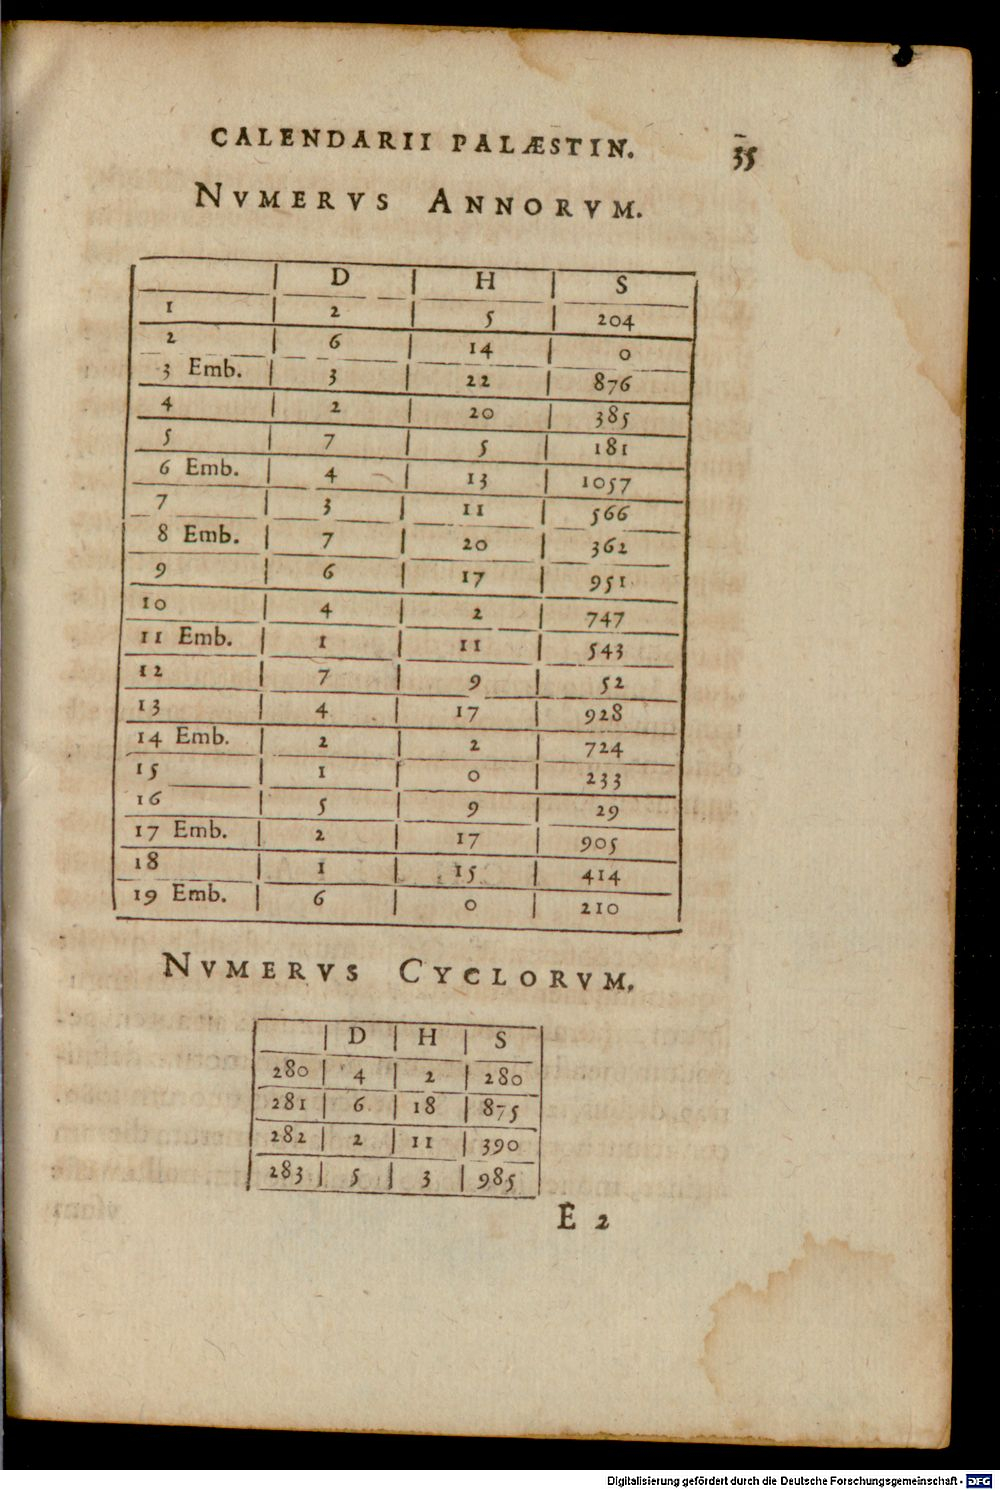 CALENDARII PALÆSTIN. 35
NVMERVS ANNORVM.
D H S
1 2 5 204
2 6 14 0
3 Emb. 3 22 876
4 2 20 385
5 7 5 181
6 Emb. 4 13 1057
7 3 11 566
8 Emb. 7 20 362
9 6 17 951
10 4 2 747
11 Emb. 1 11 543
12 7 9 52
13 4 17 928
14 Emb. 2 2 724
15 1 0 233
16 5 9 29
17 Emb. 2 17 905
18 1 15 414
19 Emb. 6 0 210
NVMERVS CYCLORVM.
D H S
280 4 2 280
281 6 18 875
282 2 11 390
283 5 3 985
E 2
Digitalisierung gefördert durch die Deutsche Forschungsgemeinschaft - DFG